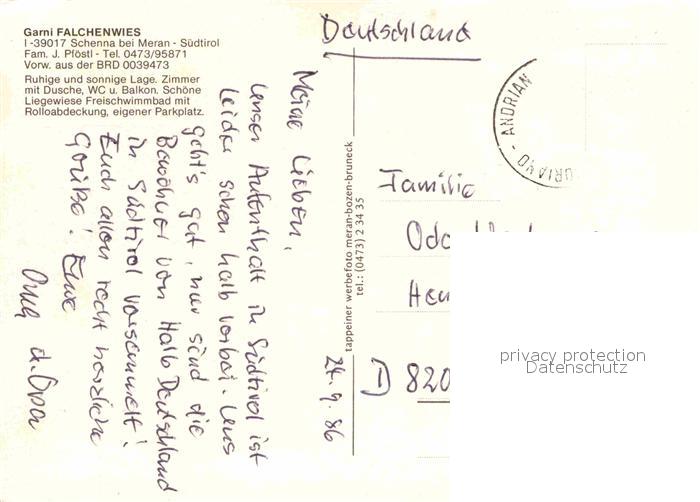 Garni FALCHENWIES
I-39017 Schenna bei Meran - Südtirol
Fam. J. Pföstl - Tel. 0473/95871
Vorw. aus der BRD 0039473
Ruhige und sonnige Lage. Zimmer
mit Dusche, WC u. Balkon. Schöne
Liegewiese Freischwimmbad mit
Rolloabdeckung, eigener Parkplatz.
Meine Lieben,
Unser Aufenthalt in Südtirol ist
leider schon halb vorbei. Uns
geht's gut, nur sind die
Bewohner von Halb Deutschland
in Südtirol versammelt!
Euch allen recht herzliche
Grüße! Eure
Oma u. Opa
24.9.86
tappeiner werbefoto meran-bozen-bruneck
tel.: (0473) 2 34 35
Deutschland
ANDRIAN
Familie
D 820
privacy protection
Datenschutz